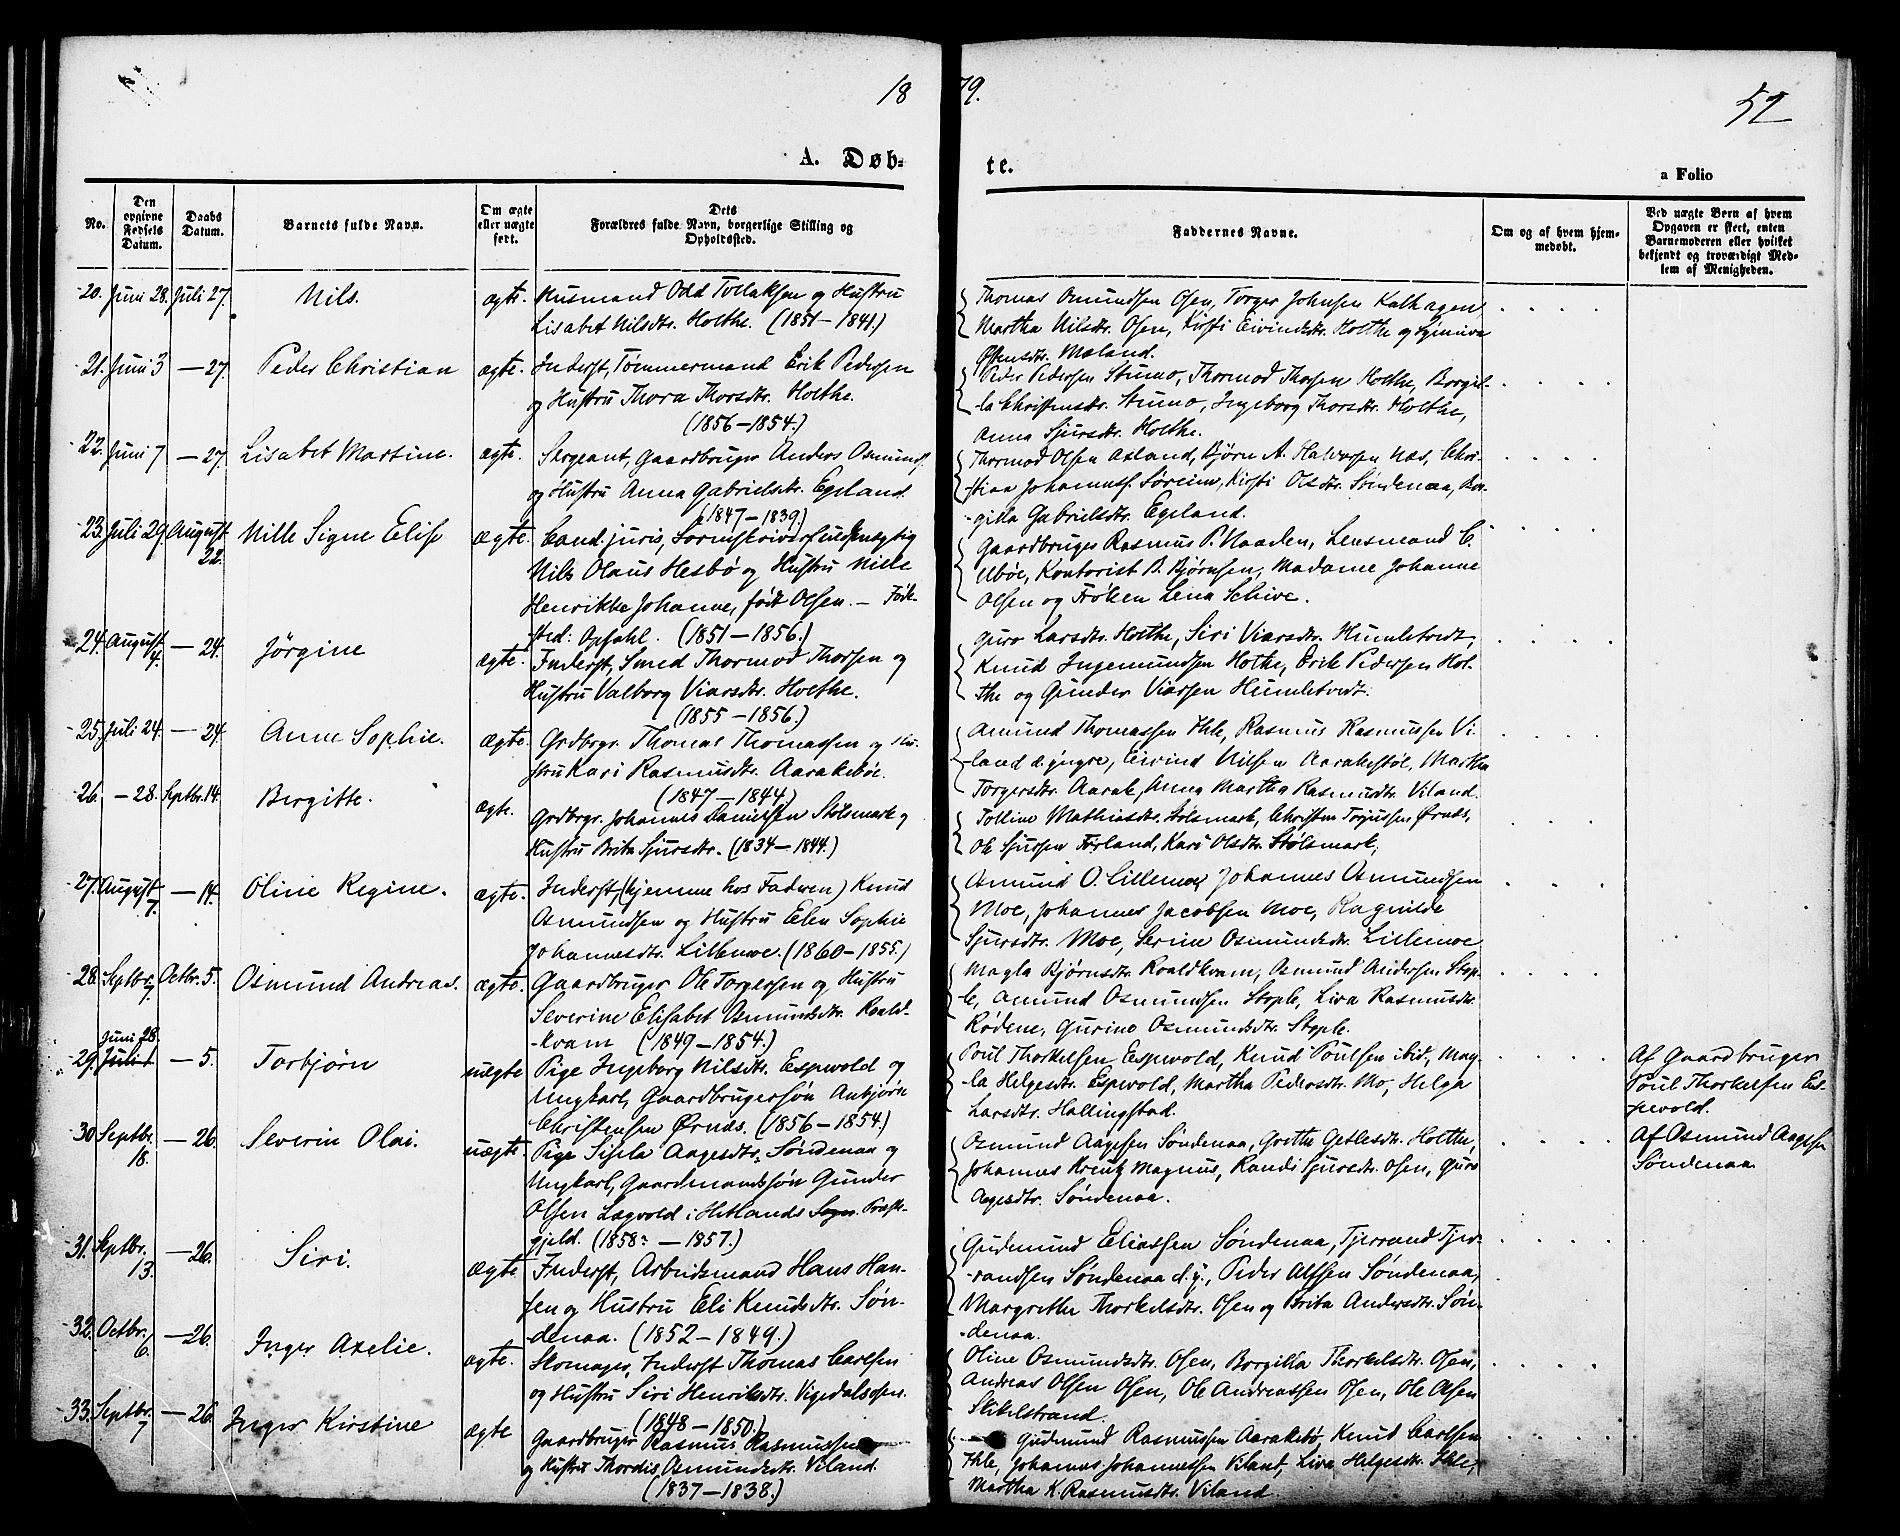 18
79.
52
A. Døb-
te.
a Folio
No.
Den opgivne Fødsels Datum.
Daabs Datum.
Barnets fulde Navn.
Om ægte eller uægte født.
Dets Forældres fulde Navn, borgerlige Stilling og Opholdssted.
Faddernes Navne.
Om og af hvem hjemmedøbt.
Ved uægte Børn af hvem Opgaven er skeet, enten Barnemoderen eller hvilket bekjendt og troværdigt Medlem af Menigheden.
20. Juni 28. Juli 27. Nils. ægte. Husmand Odd Tollaksen og Hustru
Lisabet Nilsdtr. Holthe. (1851–1841.)
Thomas Osmundsen Osen, Torger Johnsen Kalhagen
Martha Nilsdtr. Osen, Kirsti Eivindsdtr. Holthe og
Mæland.
21. Juni 3 — 27. Peder Christian ægte. Inderst, Tømmermand Erik Pedersen
og Hustru Thora Thorsdtr. Holthe.
(1856–1854.)
Peder Pedersen Stumo, Thormod Thorsen Holthe, Borgil-
la Christensdtr. Stumo, Ingeborg Thorsdtr. Holthe,
Anna Sjursdtr. Holthe.
22. Juni 7 — 27. Lisabet Martine. ægte. Sergeant, Gaardbruger Anders Osmunds.
og Hustru Anna Gabrielsdtr. Egeland.
(1847–1839.)
Thormod Olsen Axland, Bjørn A. Halvorsen Næs, Chri-
stian Johannesf. Søreim, Kirsti Olsdtr. Søndenaa, Bor-
gilla Gabrielsdtr. Egeland.
23. Juli 29. August 22. Nille Signe Elise ægte. Cand. juris, Sorenskriverfuldmægtig
Nils Olaus Hesbø og Hustru Nille
Henrikke Johanne, født Olsen. — Føde-
sted: Opsahl. (1851–1856.)
Gaardbruger Rasmus P. Naaden, Lensmand C.
Ubøe, Kontorist B. Bjørnsen, Madame Johanne
Olsen og Frøken Lena Schive.
24. August 4. — 24. Jørgine ægte. Inderst, Smed Thormod Thorsen og
Hustru Valborg Viarsdtr. Holthe.
(1855–1856.)
Guro Larsdtr. Holthe, Siri Viarsdtr. Humletvedt,
Knud Ingemundsen Holthe, Erik Pedersen Hol-
the og Gunder Viarsen Humletvedt.
25. Juli 24. — 24. Anne Sophie. ægte. Grdbrgr. Thomas Thomassen og Hu-
stru Kari Rasmusdtr. Aarakebøe.
(1847–1844.)
Amund Thomassen Ihle, Rasmus Rasmussen Vi-
land d. yngre, Eivind Nilsen Aarakestøl, Martha
Torgersdtr. Aarak, Anna Martha Rasmusdtr. Viland.
26. — 28. Septbr. 14. Bergitte. ægte. Grdbrgr. Johannes Danielsen Stølsmark og
Hustru Brita Sjursdtr. (1834–1844.)
Tolline Mathiasdtr. Stølsmark, Christen Torjussen Ørnes,
Ole Sjursen Førland, Kari Olsdtr. Stølsmark,
27. August 7. — 14. Oline Regine. ægte. Inderst, (hjemme hos Faderen) Knud
Osmundsen og Hustru Elen Sophie
Johannesdtr. Lillemoe. (1860–1855.)
Osmund O. Lillemoe, Johannes Osmundsen
Moe, Johannes Jacobsen Moe, Ragnilde
Sjursdtr. Moe, Serine Osmundsdtr. Lillemoe
28. Septbr. 7. Octbr. 5. Osmund Andreas. ægte. Gaardbruger Ole Torgersen og Hustru
Severine Elisabet Osmundsdtr. Roald-
-kvam (1849–1854.)
Magla Bjørnsdtr. Roaldkvam, Osmund Andersen Stop-
le, Amund Osmundsen Stople, Liva Rasmusdtr.
Rødene, Gurine Osmundsdtr. Stople.
Juni 28.
29. Juli 1 — 5. Torbjørn uægte Pige Ingeborg Nilsdtr. Espevold og
Ungkarl, Gaardbrugersøn Anbjørn
Christensen Ørnes. (1856–1854.)
Poul Thorkelsen Espevold, Knud Poulsen ibid., Mag-
la Helgesdtr. Espevold, Martha Pedersdtr. Mo, Helga
Larsdtr. Hallingstad.
Af Gaardbruger
Poul Thorkelsen Es-
pevold.
30 Septbr. 18. — 26. Severin Olai. uægte. Pige Sisela Aagesdtr. Søndenaa og
Ungkarl, Gaardmandssøn Gunder
Olsen Lægvold i Hetlands Sogn. Præste-
gjeld. (1858 — 1857.)
Osmund Aagesen Søndenaa, Grethe Getlesdtr. Holthe,
Johannes Kreutz Magnus, Randi Sjursdtr. Osen, Guro
Aagesdtr. Søndenaa.
Af Osmund Aagesen
Søndenaa
31. Septbr. 13. — 26. Siri. ægte Inderst, Arbeidsmand Hans Han-
sen og Hustru Eli Knudsdtr. Søn-
denaa. (1852–1849.)
Gudmund Eliassen Søndenaa, Tjerrand Tjer-
randsen Søndenaa d. y., Peder Alfsen Søndenaa,
Margrethe Thorkelsdtr. Osen og Brita Andersdtr. Søn-
-denaa.
32. Octbr. 6. — 26. Inger Axelie. ægte. Skomager, Inderst Thomas Carlsen
og Hustru Siri Henriksdtr. Vigedalsosen.
(1848–1850.)
Oline Osmundsdtr. Osen, Borgilla Thorkelsdtr. Osen,
Andreas Olsen Osen, Ole Andreassen Osen, Ole Olsen
Skikelstrand.
33. Septbr. 7 — 26. Inger Kirstine ægte Gaardbruger Rasmus Rasmussen
og Hustru Thordis Osmundsdtr. Viland.
(1837–1838.)
Gudmund Rasmussen Aarakebø, Knud Carlsen
Ihle, Johannes Johannessen Viland, Liva Helgesdtr. Ihle,
Martha K. Rasmusdtr. Viland.